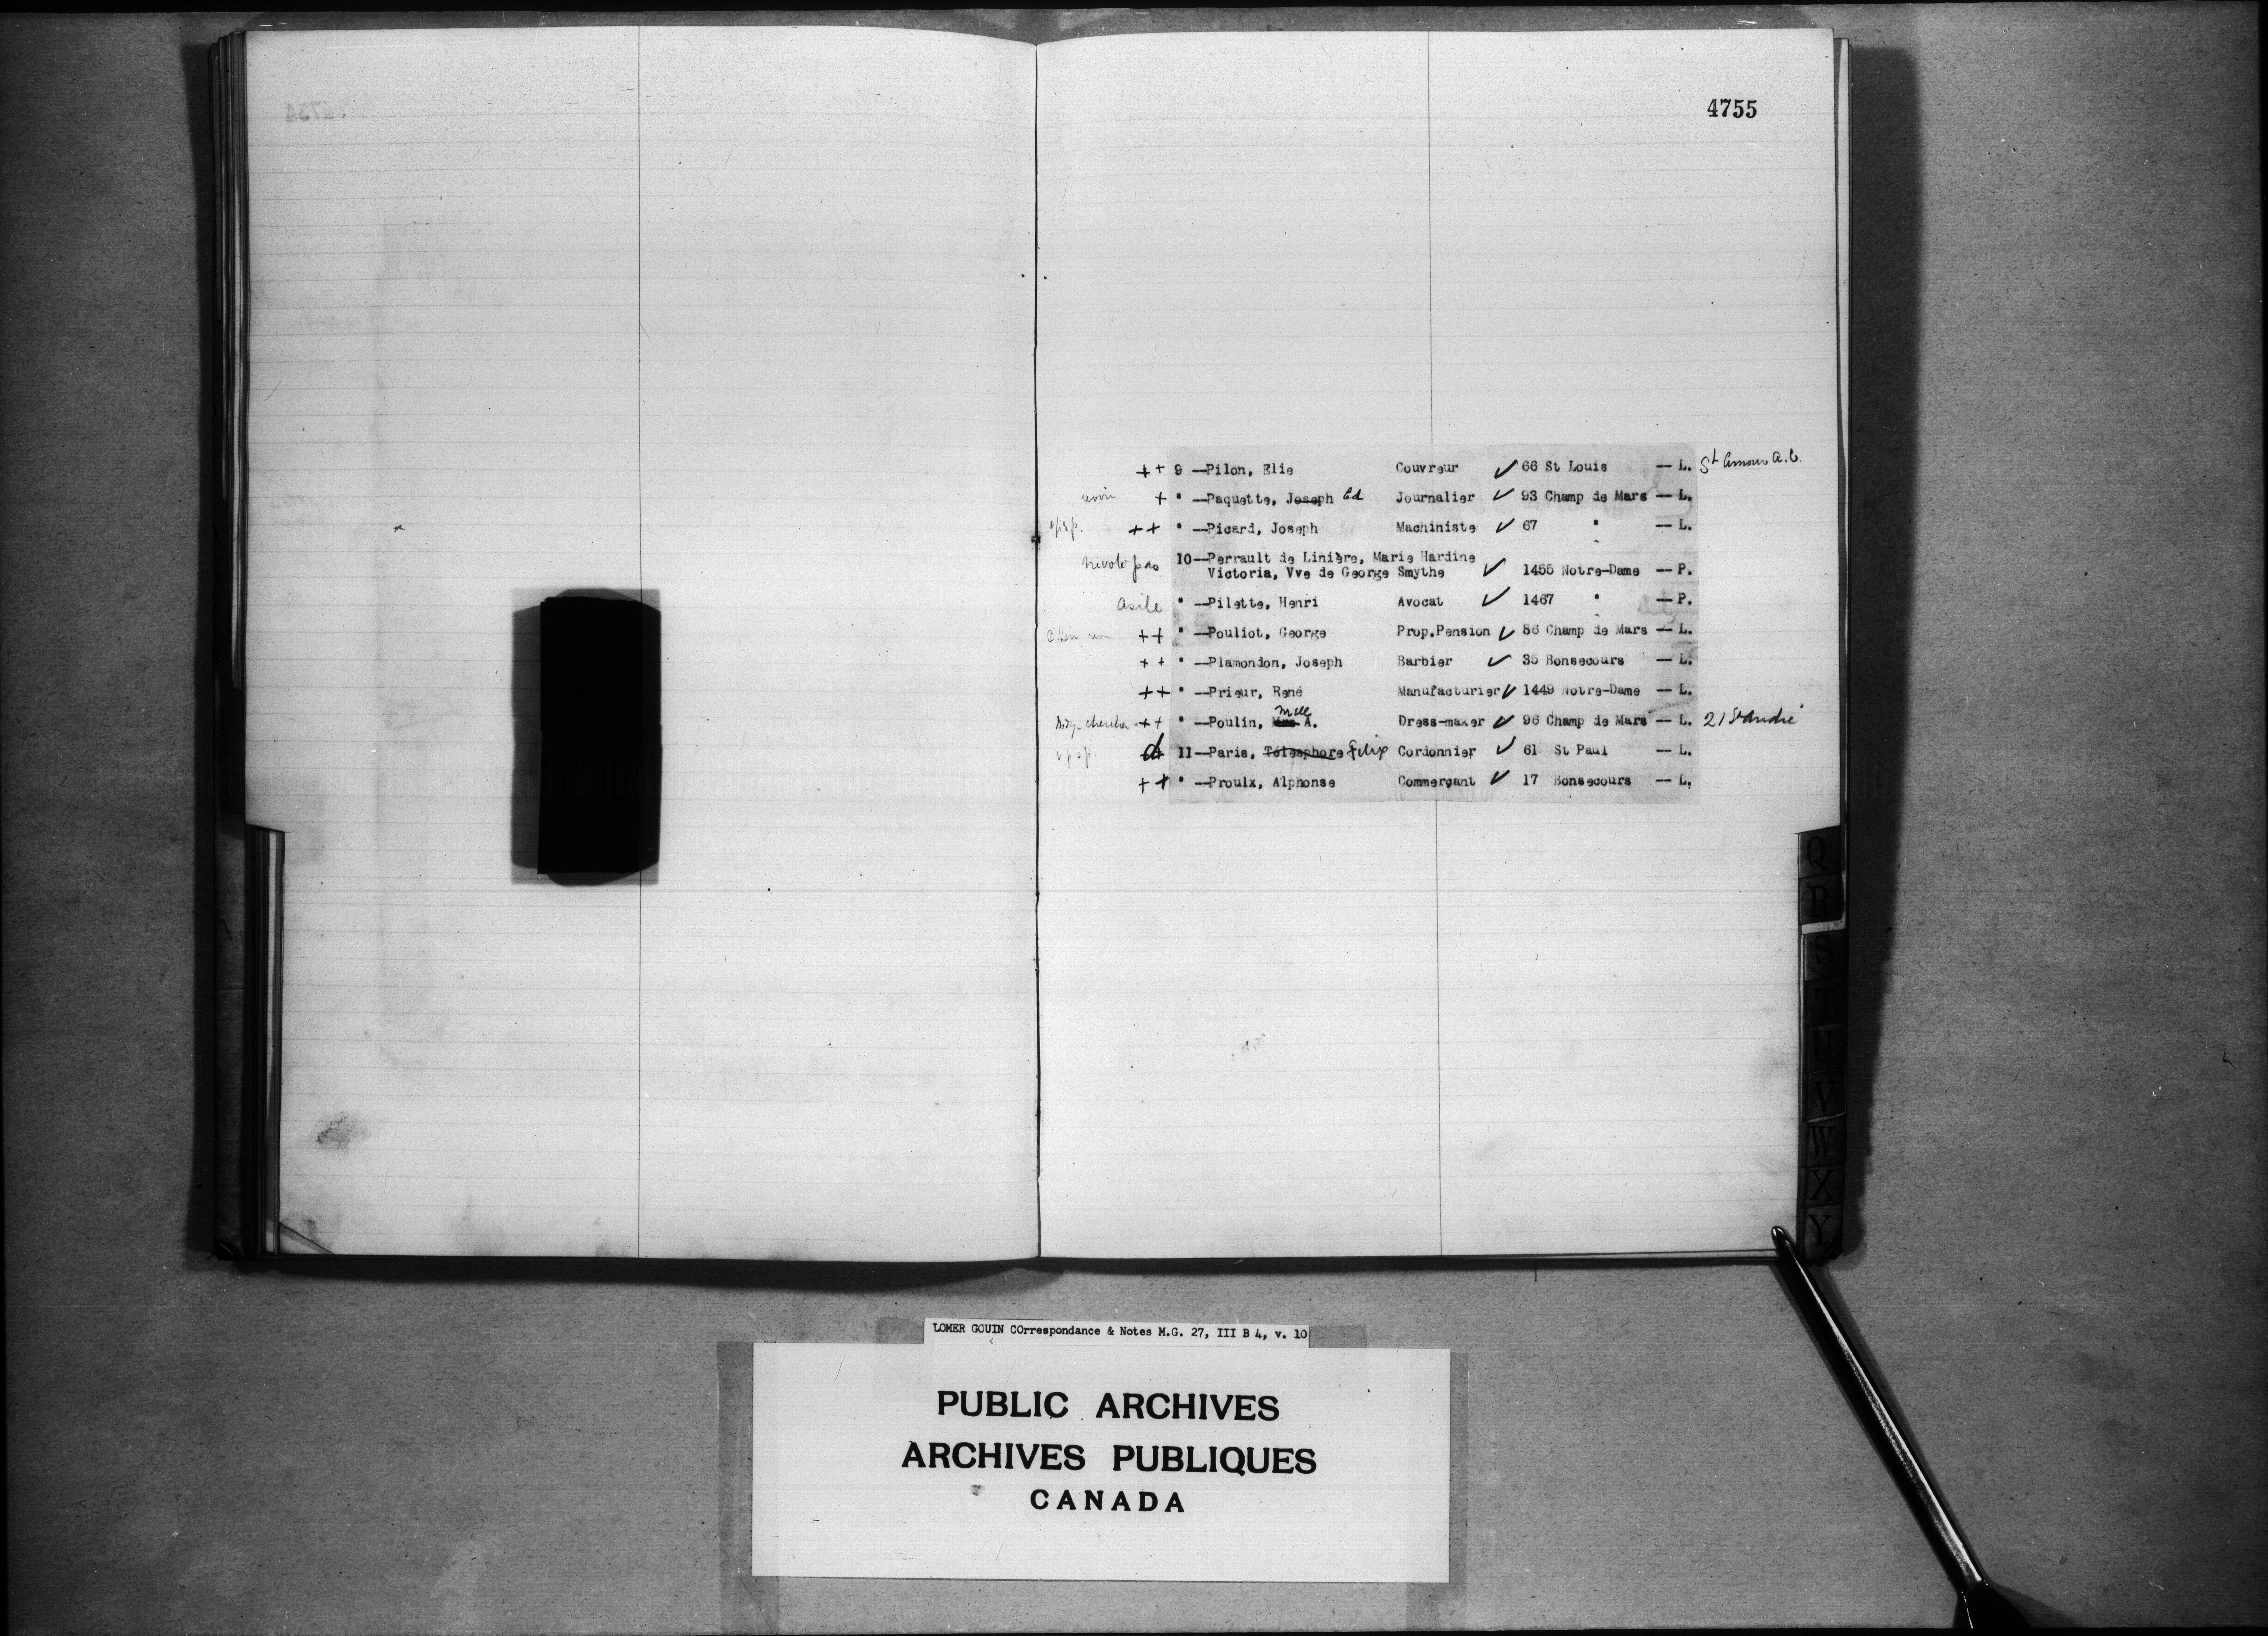 4755
++ 9 —Pilon, Elie Couvreur ✓ 66 St Louis — L. St Amour A.C.
revoir + " —Paquette, Joseph Ed Journalier ✓ 93 Champ de Mars — L.
++ " —Picard, Joseph Machiniste ✓ 67 " — L.
ne vote pas 10—Perrault de Linière, Marie Hardine
Victoria, Vve de George Smythe ✓ 1455 Notre-Dame — P.
asile " —Pilette, Henri Avocat ✓ 1467 " — P.
++ " —Pouliot, George Prop.Pension ✓ 86 Champ de Mars — L.
++ " —Plamondon, Joseph Barbier ✓ 35 Bonsecours — L.
++ " —Prieur, René Manufacturier ✓ 1449 Notre-Dame — L.
chercher ++ " —Poulin, Mlle A. Dress-maker ✓ 96 Champ de Mars — L. 21 St André
d 11—Paris, Télesphore Felix Cordonnier ✓ 61 St Paul — L.
++ " —Proulx, Alphonse Commerçant ✓ 17 Bonsecours — L.
Q
R
S
T
U
V
W
X
Y
LOMER GOUIN COrrespondance & Notes M.G. 27, III B 4, v. 10
PUBLIC ARCHIVES
ARCHIVES PUBLIQUES
CANADA